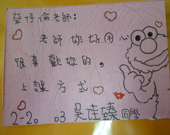 蔡伃倫老師：
老師妳好用心
很喜歡妳的
上課方式
2-20 03 吳佳臻 同學